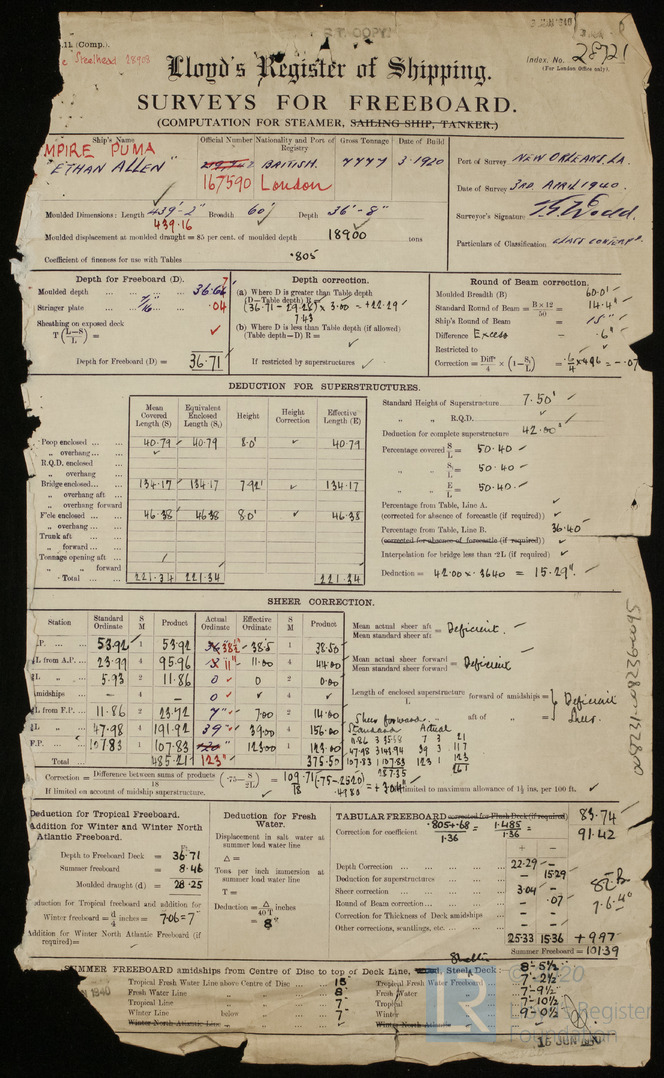 11. (Comp.)
Steelhead 28903
Lloyd's Register of Shipping.
Index. No. 28721
(For London Office only).
SURVEYS FOR FREEBOARD.
(COMPUTATION FOR STEAMER, SAILING SHIP, TANKER.)
Ship's Name
MPIRE PUMA
"ETHAN ALLEN"
Official Number
167590
Nationality and Port of Registry
BRITISH.
London
Gross Tonnage
7777
Date of Build
3-1920
Port of Survey NEW ORLEANS, LA.
Date of Survey 3RD APRIL 1940.
Surveyor's Signature
Particulars of Classification CLASS CONTEMPD
Moulded Dimensions: Length 439'-2" Breadth 60' Depth 36'-8"
439.16
Moulded displacement at moulded draught = 85 per cent. of moulded depth 18900 tons
Coefficient of fineness for use with Tables .805
Depth for Freeboard (D).
Moulded depth ... 36.67
Stringer plate ... 7/16 ... .04
Sheathing on exposed deck
T (L-S/L) =
Depth for Freeboard (D) = 36.71
Depth correction.
(a) Where D is greater than Table depth
(D-Table depth) R =
(36.71 - 29.28) x 3.00 = +22.29"
7.43
(b) Where D is less than Table depth (if allowed)
(Table depth-D) R =
If restricted by superstructures
Round of Beam correction.
Moulded Breadth (B) 60.0'
Standard Round of Beam = B x 12/50 = 14.4"
Ship's Round of Beam = 15"
Difference Excess .6"
Restricted to
Correction = Diffce/4 x (1-S₁/L) = .6/4 x .496 = -.07
DEDUCTION FOR SUPERSTRUCTURES.
Mean Covered Length (S)
Equivalent Enclosed Length (S₁)
Height
Height Correction
Effective Length (E)
Poop enclosed ... 40.79 40.79 8.0' 40.79
„ overhang ...
R.Q.D. enclosed
„ overhang
Bridge enclosed ... 134.17 134.17 7.92' 134.17
„ overhang aft ...
„ overhang forward
F'cle enclosed ... 46.38 46.38 8.0 46.38
„ overhang ...
Trunk aft ...
„ forward ...
Tonnage opening aft ...
„ „ forward
Total ... 221.34 221.34 221.34
Standard Height of Superstructure 7.50'
„ „ R.Q.D.
Deduction for complete superstructure 42.00"
Percentage covered S/L = 50.40
„ „ S₁/L = 50.40
„ „ E/L = 50.40
Percentage from Table, Line A.
(corrected for absence of forecastle (if required))
Percentage from Table, Line B. 36.40
(corrected for absence of forecastle (if required))
Interpolation for bridge less than ·2L (if required)
Deduction = 42.00 x .3640 = 15.29".
SHEER CORRECTION.
Station
Standard Ordinate
S M
Product
Actual Ordinate
Effective Ordinate
S M
Product
.P. ... 53.92 1 53.92 38½" 38.5 1 38.50
L from A.P. ... 23.99 4 95.96 11" 11.00 4 44.00
L „ ... 5.93 2 11.86 0 0 2 0.00
Amidships ... - 4 - 0 4
L from F.P. ... 11.86 2 23.72 7" 7.00 2 14.00
L „ ... 47.98 4 191.92 39" 39.00 4 156.00
F.P. ... 107.83 1 107.83 123" 123.00 1 123.00
Total ... 485.21 375.50
Mean actual sheer aft
Mean standard sheer aft = Deficient.
Mean actual sheer forward
Mean standard sheer forward = Deficient
Length of enclosed superstructure/L forward of amidships =
„ „ aft of „ = Deficient Sheer.
Sheer forward
Standard Actual
11.86 3 35.58 7 3 21
47.98 3 143.94 39 3 117
107.83 1 107.83 123 1 123
287.35 261
Correction = Difference between sums of products/18 (·75-S/2L) = 109.71/18 (.75-.2520) = +3.04"
.4980
If limited on account of midship superstructure.
If limited to maximum allowance of 1½ ins. per 100 ft.
Deduction for Tropical Freeboard.
Addition for Winter and Winter North Atlantic Freeboard.
Ft.
Depth to Freeboard Deck = 36.71
Summer freeboard = 8.46
Moulded draught (d) = 28.25
Deduction for Tropical freeboard and addition for
Winter freeboard = d/4 inches = 7.06 = 7"
Addition for Winter North Atlantic Freeboard (if required) =
Deduction for Fresh Water.
Displacement in salt water at summer load water line
Δ =
Tons per inch immersion at summer load water line
T =
Deduction = Δ/40 T inches
= 8"
TABULAR FREEBOARD corrected for Flush Deck (if required) 83.74
Correction for coefficient .805+.68/1.36 = 1.485/1.36 91.42
+ -
Depth Correction ... 22.29 -
Deduction for superstructures ... - 15.29
Sheer correction ... 3.04 -
Round of Beam correction ... - .07
Correction for Thickness of Deck amidships ... - -
Other corrections, scantlings, etc. ... - -
25.33 15.36 +9.97
Summer Freeboard = 101.39
7.6.40
SUMMER FREEBOARD amidships from Centre of Disc to top of Deck Line, Steel Deck: 8'-5½"
Shelter
Tropical Fresh Water Line above Centre of Disc 15
Fresh Water Line „ „ 8"
Tropical Line „ „ 7"
Winter Line below „ „ 7"
Winter North Atlantic Line „ „
Tropical Fresh Water Freeboard 7'-2½"
Fresh Water „ 7'-9½"
Tropical „ 7'-10½"
Winter „ 9'-0½"
Winter North Atlantic „
15 JUN 1940
LR
© 2020
Lloyd's Register
Foundation